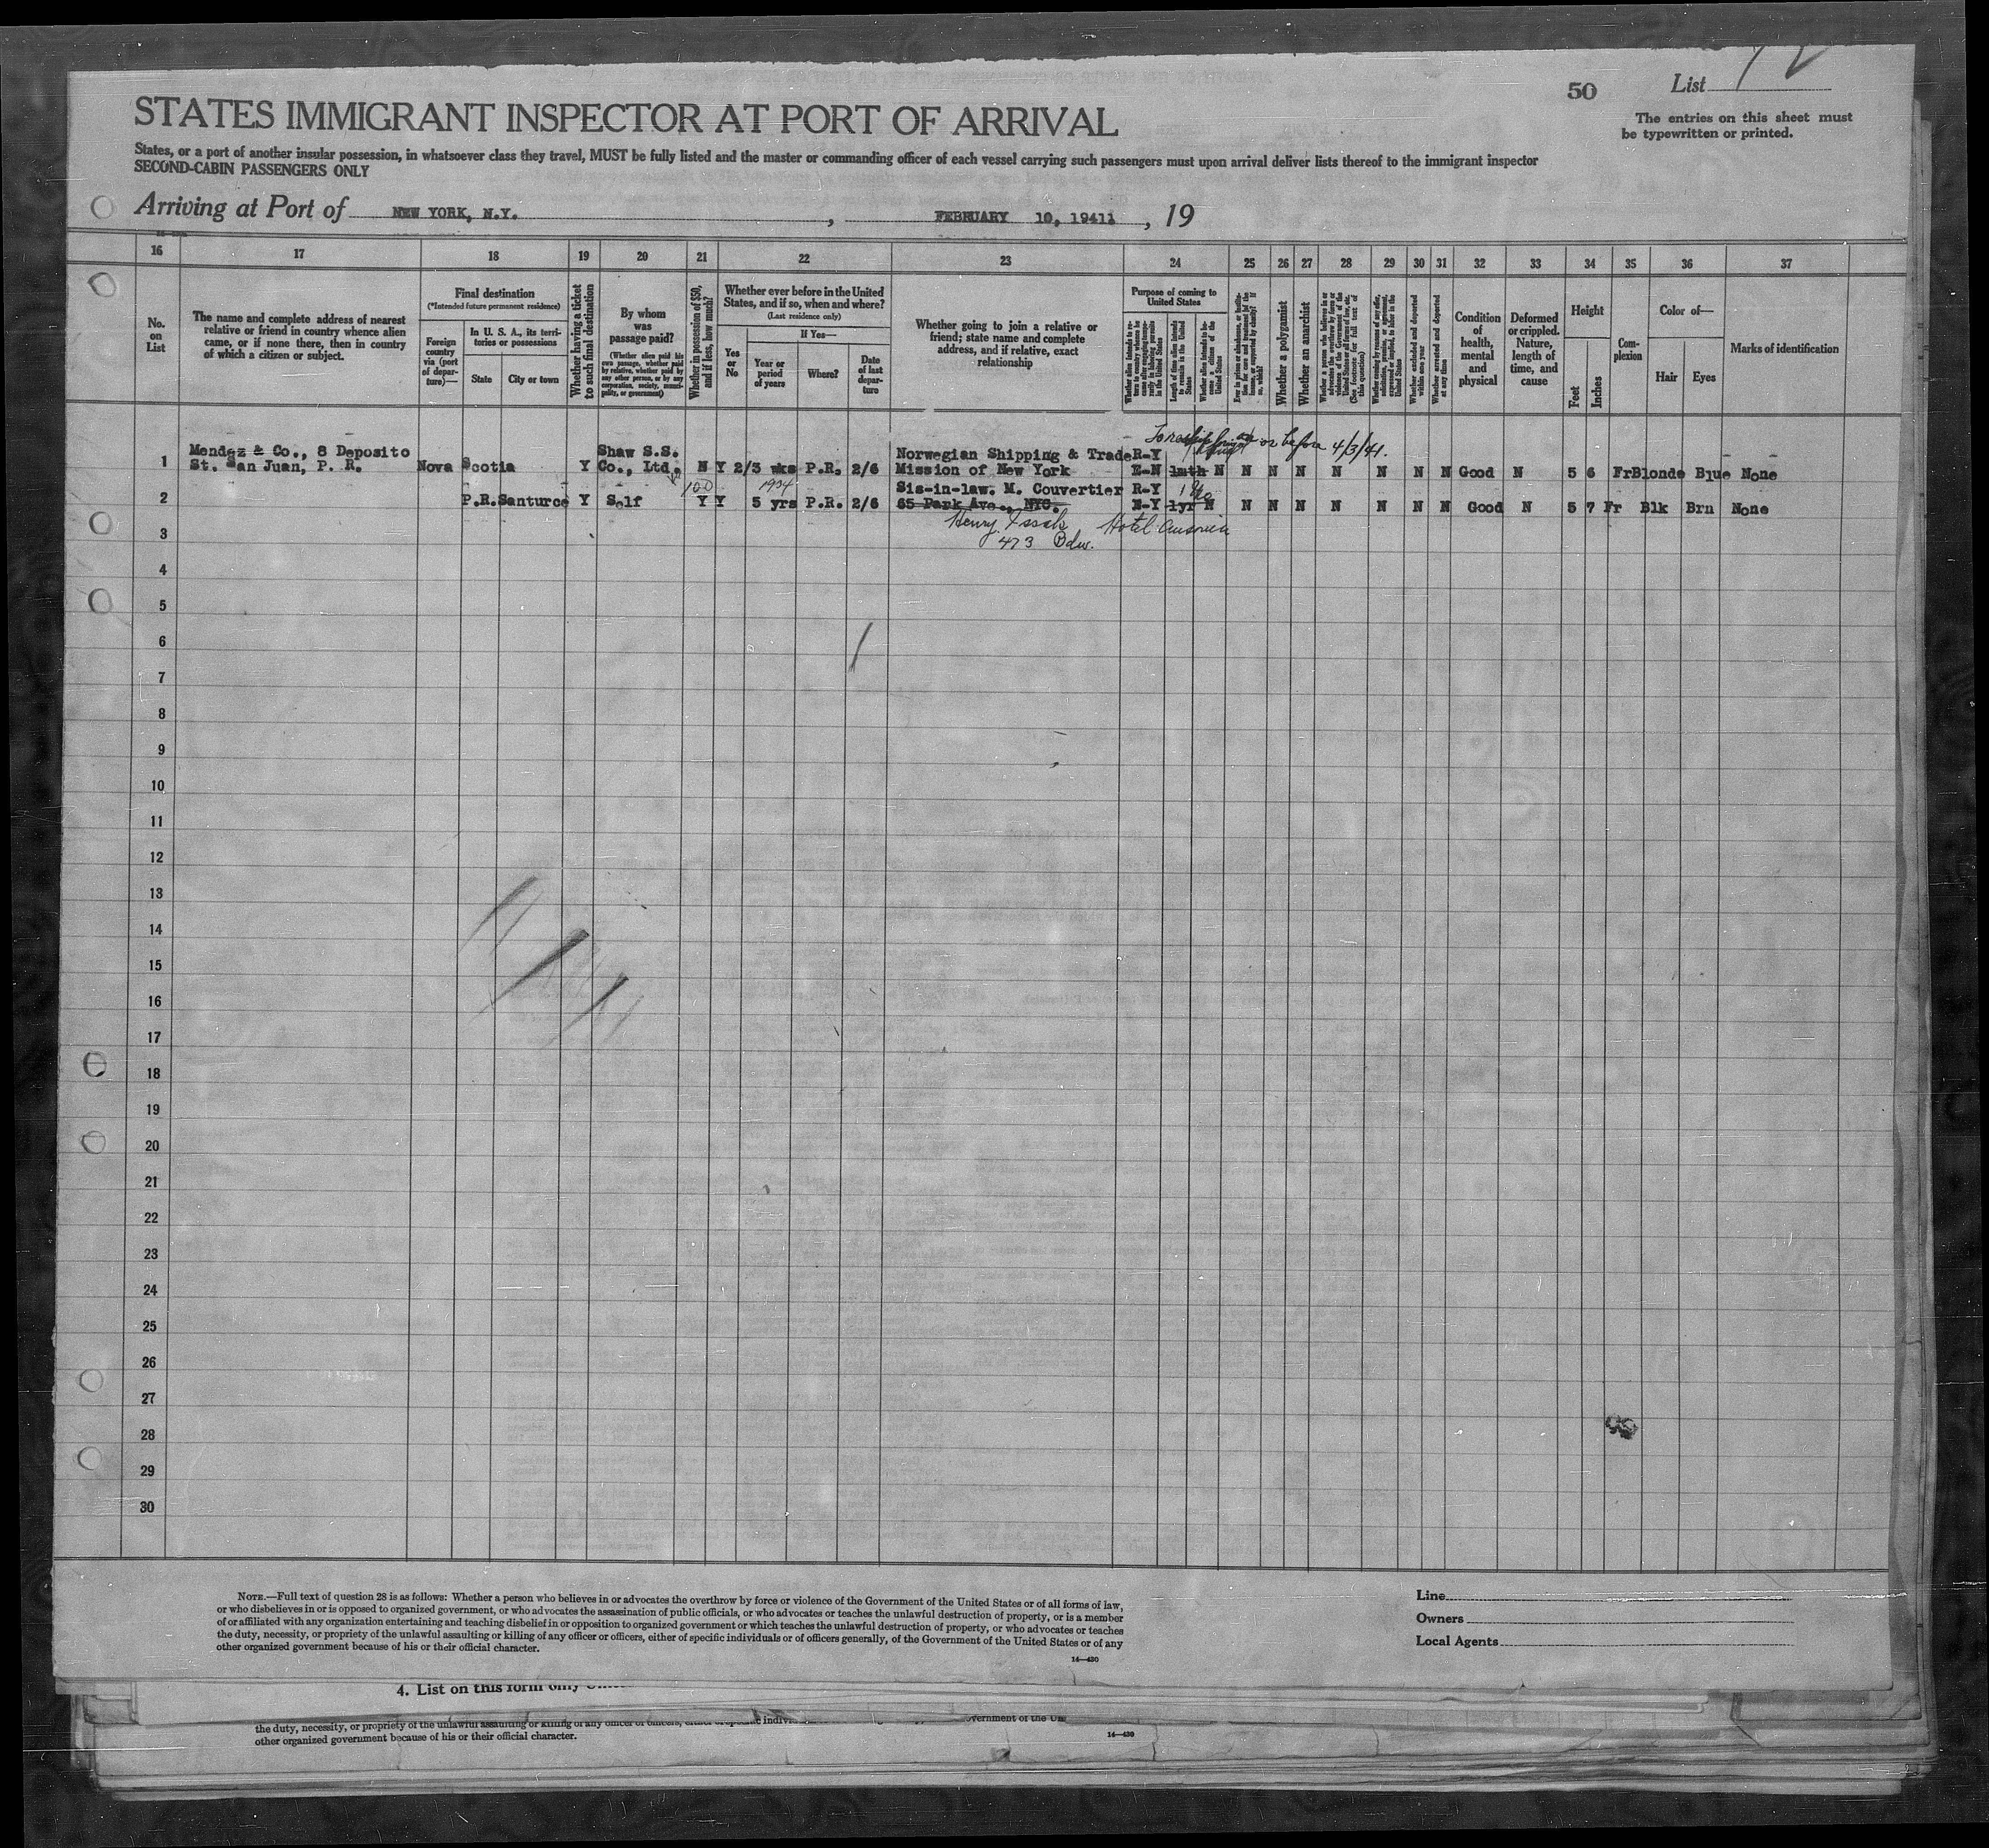 50 List 12
The entries on this sheet must
be typewritten or printed.
STATES IMMIGRANT INSPECTOR AT PORT OF ARRIVAL
States, or a port of another insular possession, in whatsoever class they travel, MUST be fully listed and the master or commanding officer of each vessel carrying such passengers must upon arrival deliver lists thereof to the immigrant inspector
SECOND-CABIN PASSENGERS ONLY
Arriving at Port of NEW YORK, N.Y. , FEBRUARY 10, 1941 , 19
16 17 18 19 20 21 22 23 24 25 26 27 28 29 30 31 32 33 34 35 36 37
No.
on
List
The name and complete address of nearest
relative or friend in country whence alien
came, or if none there, then in country
of which a citizen or subject.
Final destination
(*Intended future permanent residence)
Foreign
country
via (port
of depar-
ture)—
In U. S. A., its terri-
tories or possessions
State
City or town
Whether having a ticket
to such final destination
By whom
was
passage paid?
(Whether alien paid his
own passage, whether paid
by relative, whether paid by
any other person, or by any
corporation, society, munici-
pality, or government)
Whether in possession of $50,
and if less, how much?
Whether ever before in the United
States, and if so, when and where?
(Last residence only)
Yes
or
No
If Yes—
Year or
period
of years
Where?
Date
of last
depar-
ture
Whether going to join a relative or
friend; state name and complete
address, and if relative, exact
relationship
Purpose of coming to
United States
Whether alien intends to re-
turn to country whence he
came after engaging tempo-
rarily in laboring pursuits
in the United States
Length of time alien intends
to remain in the United
States
Whether alien intends to be-
come a citizen of the
United States
Whether a polygamist
Whether an anarchist
Whether excluded and deported
within one year
Whether arrested and deported
at any time
Condition
of
health,
mental
and
physical
Deformed
or crippled.
Nature,
length of
time, and
cause
Height
Feet
Inches
Com-
plexion
Color of—
Hair
Eyes
Marks of identification
or before 4/3/41.
Mendez & Co., 8 Deposito Shaw S.S. Norwegian Shipping & Trade R-Y
1 St. San Juan, P. R. Nova Scotia Y Co., Ltd. N Y 2/3 wks P.R. 2/6 Mission of New York E-N 1mth N N N N N N N N Good N 5 6 Fr Blonde Blue None
100 1934 Sis-in-law. M. Couvertier R-Y
2 P.R. Santurce Y Self Y Y 5 yrs P.R. 2/6 65 Park Ave., NYC. E-Y 1yr N N N N N N N N Good N 5 7 Fr Blk Brn None
Henry Hotel
3 473 Bdw.
4
5
6
7
8
9
10
11
12
13
14
15
16
17
18
19
20
21
22
23
24
25
26
27
28
29
30
NOTE.—Full text of question 28 is as follows: Whether a person who believes in or advocates the overthrow by force or violence of the Government of the United States or of all forms of law,
or who disbelieves in or is opposed to organized government, or who advocates the assassination of public officials, or who advocates or teaches the unlawful destruction of property, or is a member
of or affiliated with any organization entertaining and teaching disbelief in or opposition to organized government or which teaches the unlawful destruction of property, or who advocates or teaches
the duty, necessity, or propriety of the unlawful assaulting or killing of any officer or officers, either of specific individuals or of officers generally, of the Government of the United States or of any
other organized government because of his or their official character.
14—430
Line
Owners
Local Agents
4. List on this form only
the duty, necessity, or propriety of the unlawful assaulting or killing of any officer or officers,
other organized government because of his or their official character.
14—430